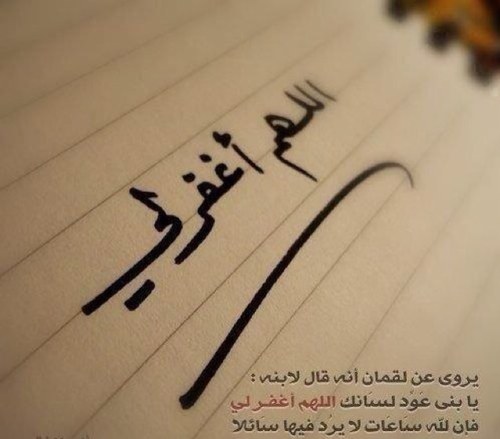 اللهم أغفر لي
يروى عن لقمان أنه قال لابنه :
يا بنى عَوِّد لسانك اللهم أغفر لي
فإن لله ساعات لا يرد فيها سائلاً